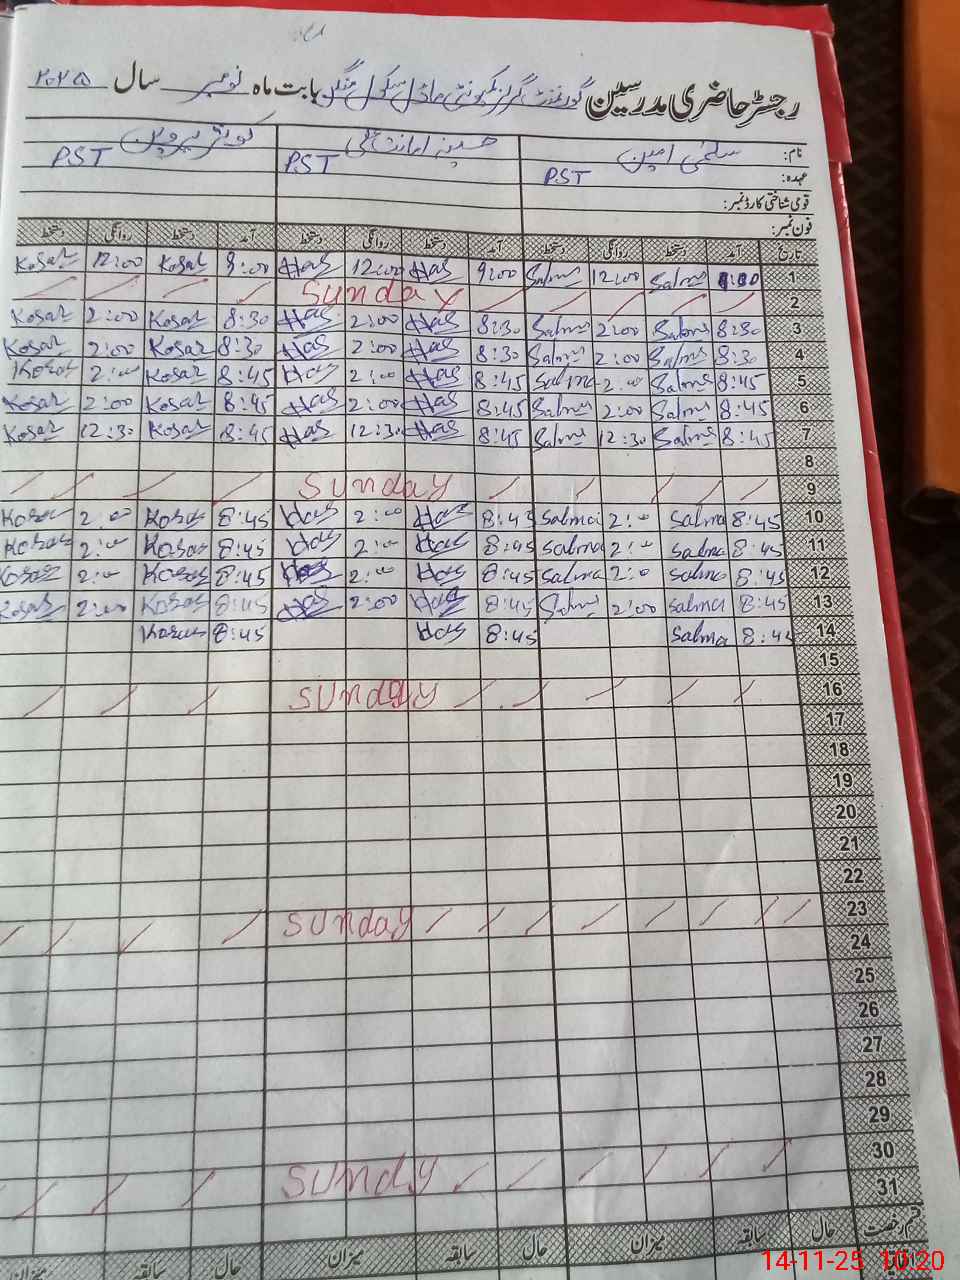 رجسٹر حاضری مدرسین گورنمنٹ گرلز کمیونٹی ماڈل سکول بابت ماہ نومبر سال ۲۰۲۵
نام: سلمٰی امین حسینہ امانت کوثر پروین
عہدہ: PST PST PST
قومی شناختی کارڈ نمبر:
فون نمبر:
تاریخ آمد دستخط روانگی دستخط آمد دستخط روانگی دستخط آمد دستخط روانگی دستخط
Kosar 12:00 Kosar 9:00 Has 12:00 Has 9:00 Salma 12:00 Salma 1
Sunday 2
Kosar 2:00 Kosar 8:30 Has 2:00 Has 8:30 Salma 2:00 Salma 8:30 3
Kosar 2:00 Kosar 8:30 Has 2:00 Has 8:30 Salma 2:00 Salma 8:30 4
Kosar 2:00 Kosar 8:45 Has 2:00 Has 8:45 Salma 2:00 Salma 8:45 5
Kosar 2:00 Kosar 8:45 Has 2:00 Has 8:45 Salma 2:00 Salma 8:45 6
Kosar 12:30 Kosar 8:45 Has 12:30 Has 8:45 Salma 12:30 Salma 8:45 7
8
Sunday 9
Kosar 2:00 Kosar 8:45 Has 2:00 Has 8:45 Salma 2:00 Salma 8:45 10
Kosar 2:00 Kosar 8:45 Has 2:00 Has 8:45 Salma 2:00 Salma 8:45 11
Kosar 2:00 Kosar 8:45 Has 2:00 Has 8:45 Salma 2:00 Salma 8:45 12
Kosar 2:00 Kosar 8:45 Has 2:00 Has 8:45 Salma 2:00 Salma 8:45 13
Kosar 8:45 Has 8:45 Salma 8:45 14
15
Sunday 16
17
18
19
20
21
22
Sunday 23
24
25
26
27
28
29
30
Sunday 31
قسم رخصت حال سابقہ میزان حال سابقہ میزان حال سابقہ میزان
14-11-25 10:20